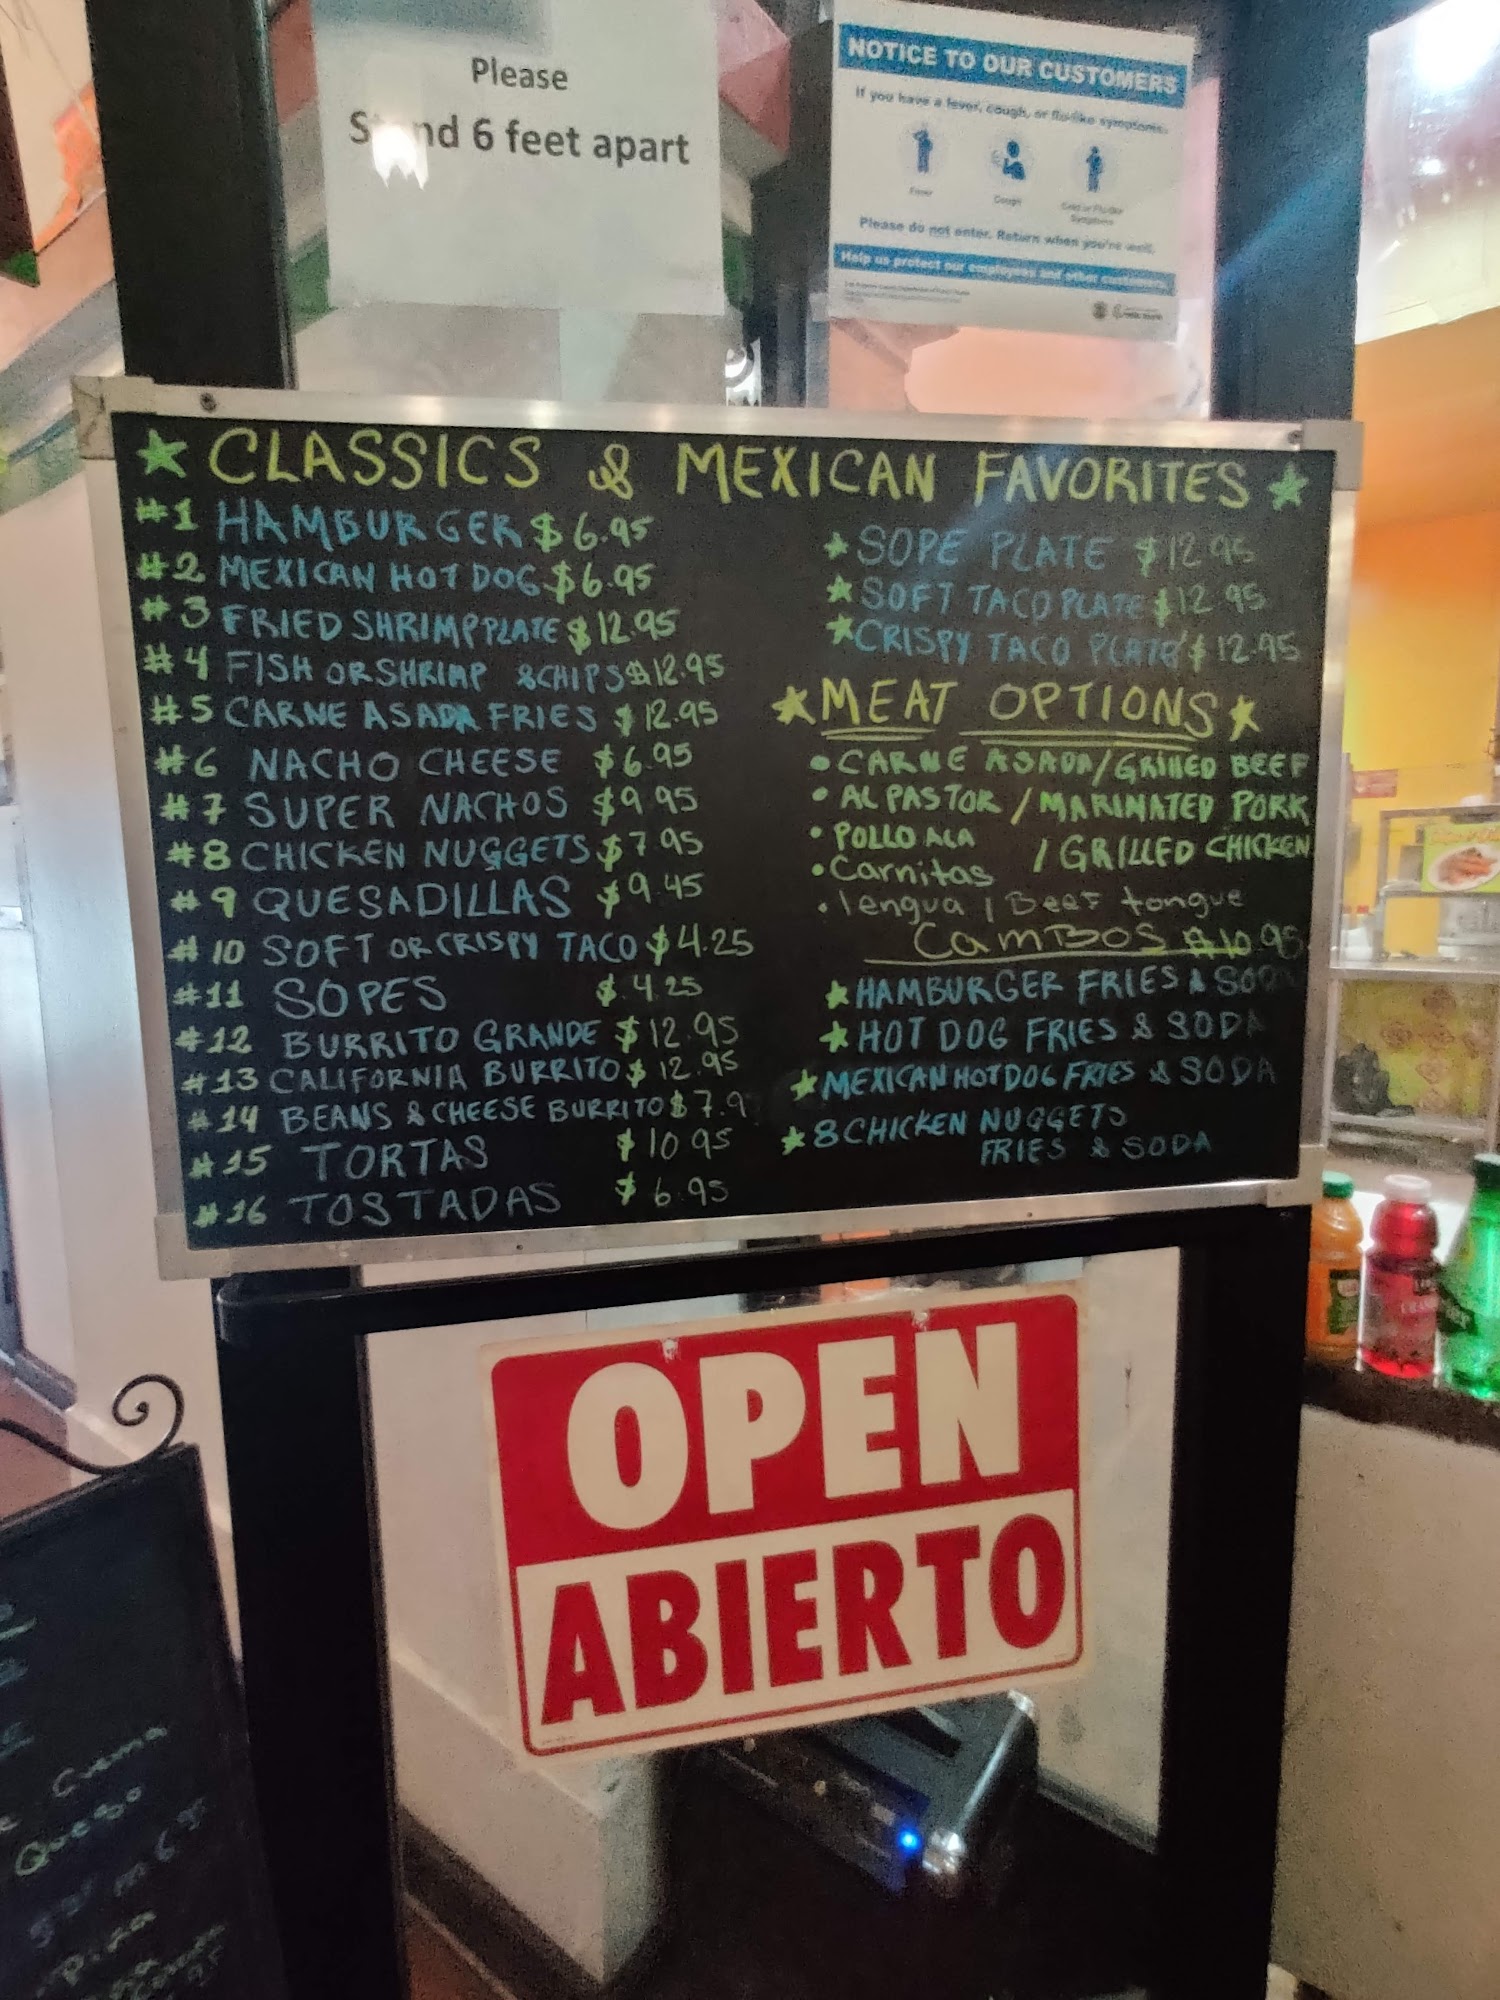 Please
Stand 6 feet apart
NOTICE TO OUR CUSTOMERS
If you have a fever, cough, or flu-like symptoms.
Fever
Cough
Cold or Flu-like
Symptoms
Please do not enter. Return when you're well.
Help us protect our employees and other customers.
CLASSICS & MEXICAN FAVORITES
#1 HAMBURGER $6.95
#2 MEXICAN HOT DOG $6.95
#3 FRIED SHRIMP PLATE $12.95
#4 FISH OR SHRIMP & CHIPS $12.95
#5 CARNE ASADA FRIES $12.95
#6 NACHO CHEESE $6.95
#7 SUPER NACHOS $9.95
#8 CHICKEN NUGGETS $7.95
#9 QUESADILLAS $9.45
#10 SOFT OR CRISPY TACO $4.25
#11 SOPES $4.25
#12 BURRITO GRANDE $12.95
#13 CALIFORNIA BURRITO $12.95
#14 BEANS & CHEESE BURRITO $7.9
#15 TORTAS $10.95
#16 TOSTADAS $6.95
SOPE PLATE $12.95
SOFT TACO PLATE $12.95
CRISPY TACO PLATE $12.95
MEAT OPTIONS
• CARNE ASADA/GRILLED BEEF
• AL PASTOR / MARINATED PORK
• POLLO ALA / GRILLED CHICKEN
• Carnitas
• lengua / Beef tongue
COMBOS $10.95
HAMBURGER FRIES & SODA
HOT DOG FRIES & SODA
MEXICAN HOT DOG FRIES & SODA
8 CHICKEN NUGGETS
FRIES & SODA
OPEN
ABIERTO
Crema
Queso